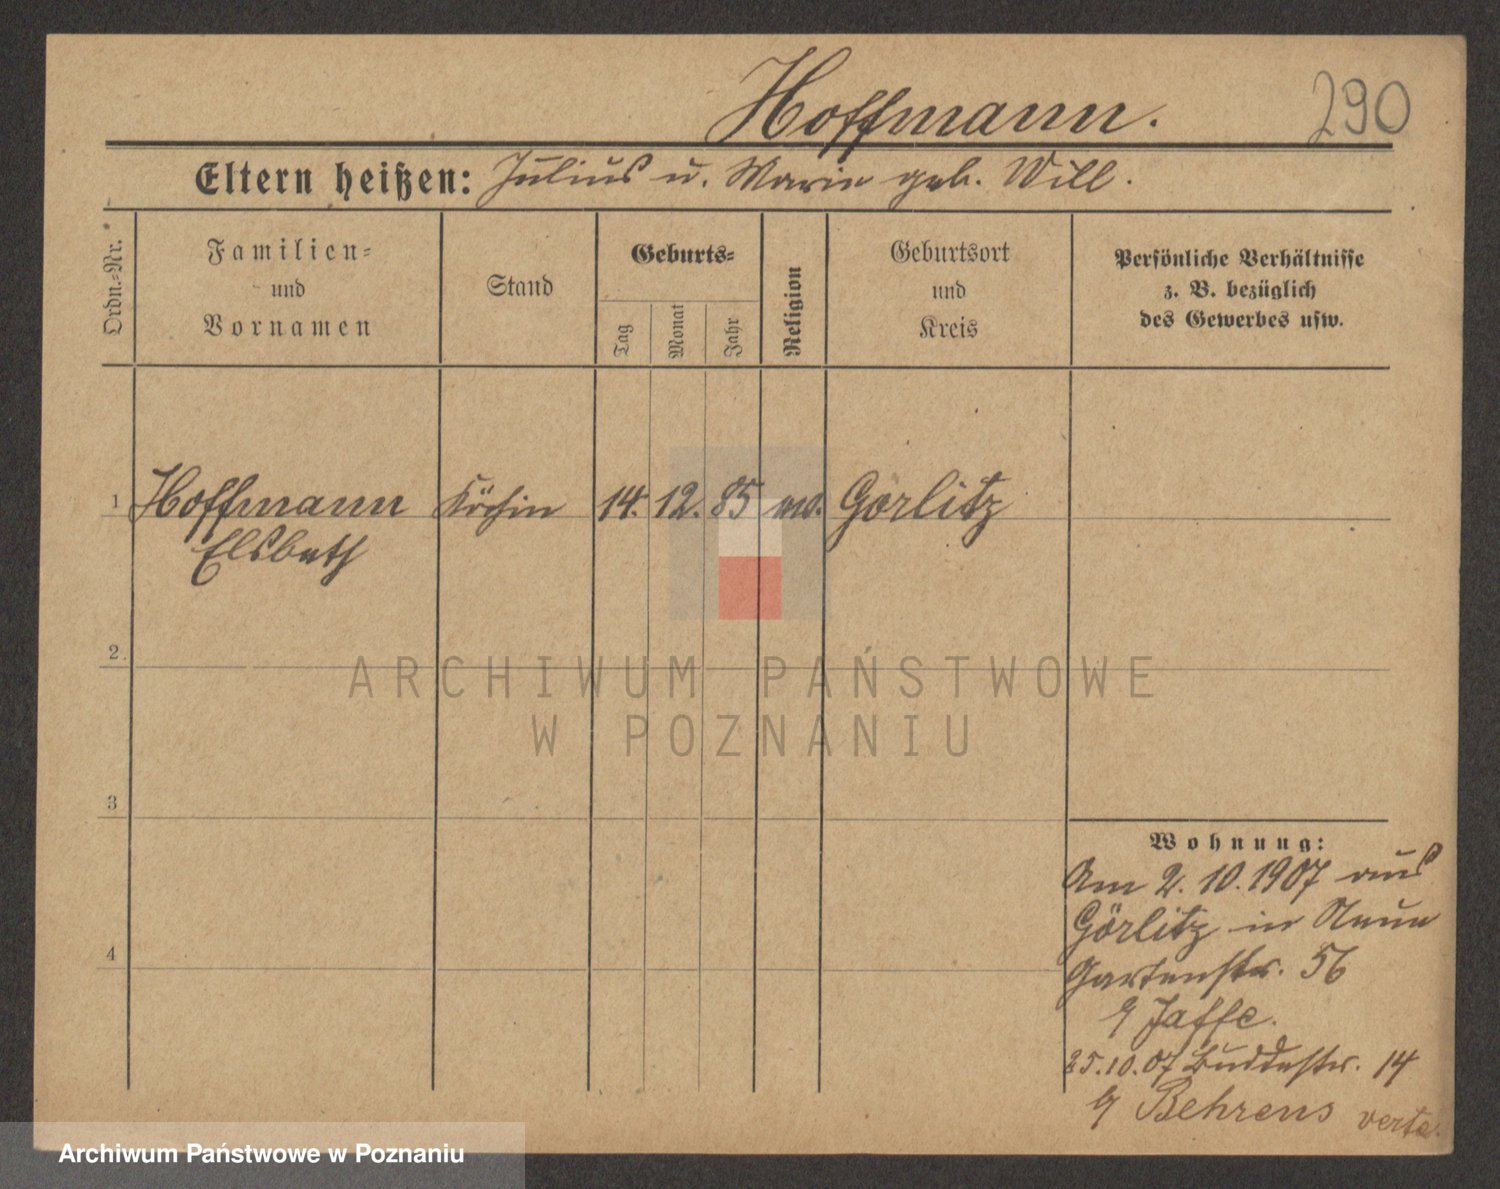 Hoffmann.
290
Eltern heißen: Julius u. Marie geb. Will.
Ordn.-Nr.
Familien-
und
Vornamen
Stand
Geburts-
Tag
Monat
Jahr
Religion
Geburtsort
und
Kreis
Persönliche Verhältnisse
z. B. bezüglich
des Gewerbes usw.
1 Hoffmann Köchin 14. 12. 85 ev. Görlitz
Elsbeth
2
3
4
ARCHIWUM PAŃSTWOWE
W POZNANIU
Wohnung:
Am 2. 10. 1907 aus
Görlitz in Neue
Gartenstr. 56
b/ Jaffe.
25.10.07 Buddestr. 14
b/ Behrens verte
Archiwum Państwowe w Poznaniu